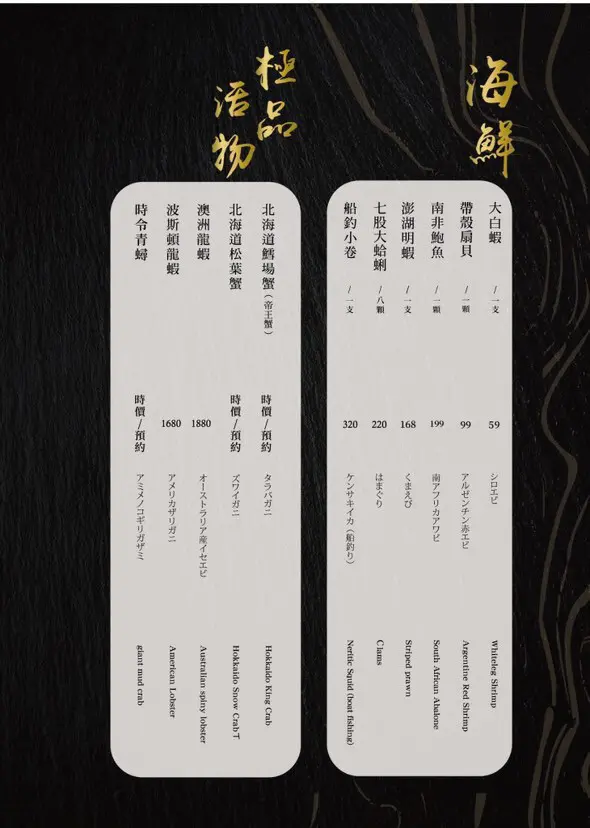 海鮮
大白蝦 /一支 59 シロエビ Whiteleg Shrimp
帶殼扇貝 /一顆 99 アルゼンチン赤エビ Argentine Red Shrimp
南非鮑魚 /一顆 199 南アフリカアワビ South African Abalone
澎湖明蝦 /一支 168 くまえび Striped prawn
七股大蛤蜊 /八顆 220 はまぐり Clams
船釣小卷 /一支 320 ケンサキイカ(船釣り) Neritic Squid (boat fishing)
極品活物
北海道鱈場蟹(帝王蟹) 時價/預約 タラバガニ Hokkaido King Crab
北海道松葉蟹 時價/預約 ズワイガニ Hokkaido Snow Crab下
澳洲龍蝦 1880 オーストラリア産イセエビ Australian spiny lobster
波斯頓龍蝦 1680 アメリカザリガニ American Lobster
時令青蟳 時價/預約 アミメノコギリガザミ giant mud crab